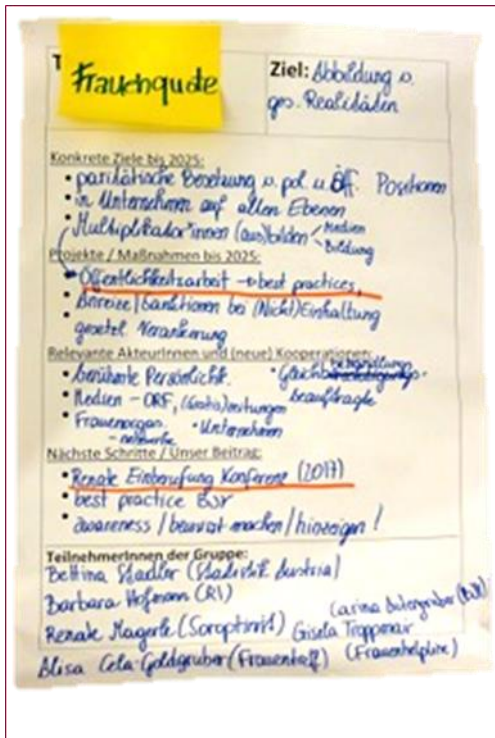 T
Frauenquote
Ziel: Abbildung v.
ges. Realitäten
Konkrete Ziele bis 2025:
• paritätische Besetzung v. pol. u. öff. Positionen
• in Unternehmen auf allen Ebenen
• Multiplikator*innen (aus)bilden
Medien
Bildung
Projekte / Maßnahmen bis 2025:
• Öffentlichkeitsarbeit → best practices,
• Anreize / Sanktionen bei (Nicht)Einhaltung
• gesetzl. Verankerung
Relevante AkteurInnen und (neue) Kooperationen:
• berühmte Persönlichk.
• Gleichbehandlungs-
beauftragte
• Medien - ORF, (Gratis)zeitungen
• Frauenorgan.
- netzwerke
• Unternehmen
Nächste Schritte / Unser Beitrag:
• Renate Einberufung Konferenz (2017)
• best practice BSP
• awareness / bewusst machen / hinzeigen!
TeilnehmerInnen der Gruppe:
Bettina Stadler (Statistik Austria)
Barbara Hofmann (RI)
Carina
Renate Magerle (Soroptimist)
Gisela
Alisa Cela-Goldgruber (Frauentreff)
(Frauenhelpline)